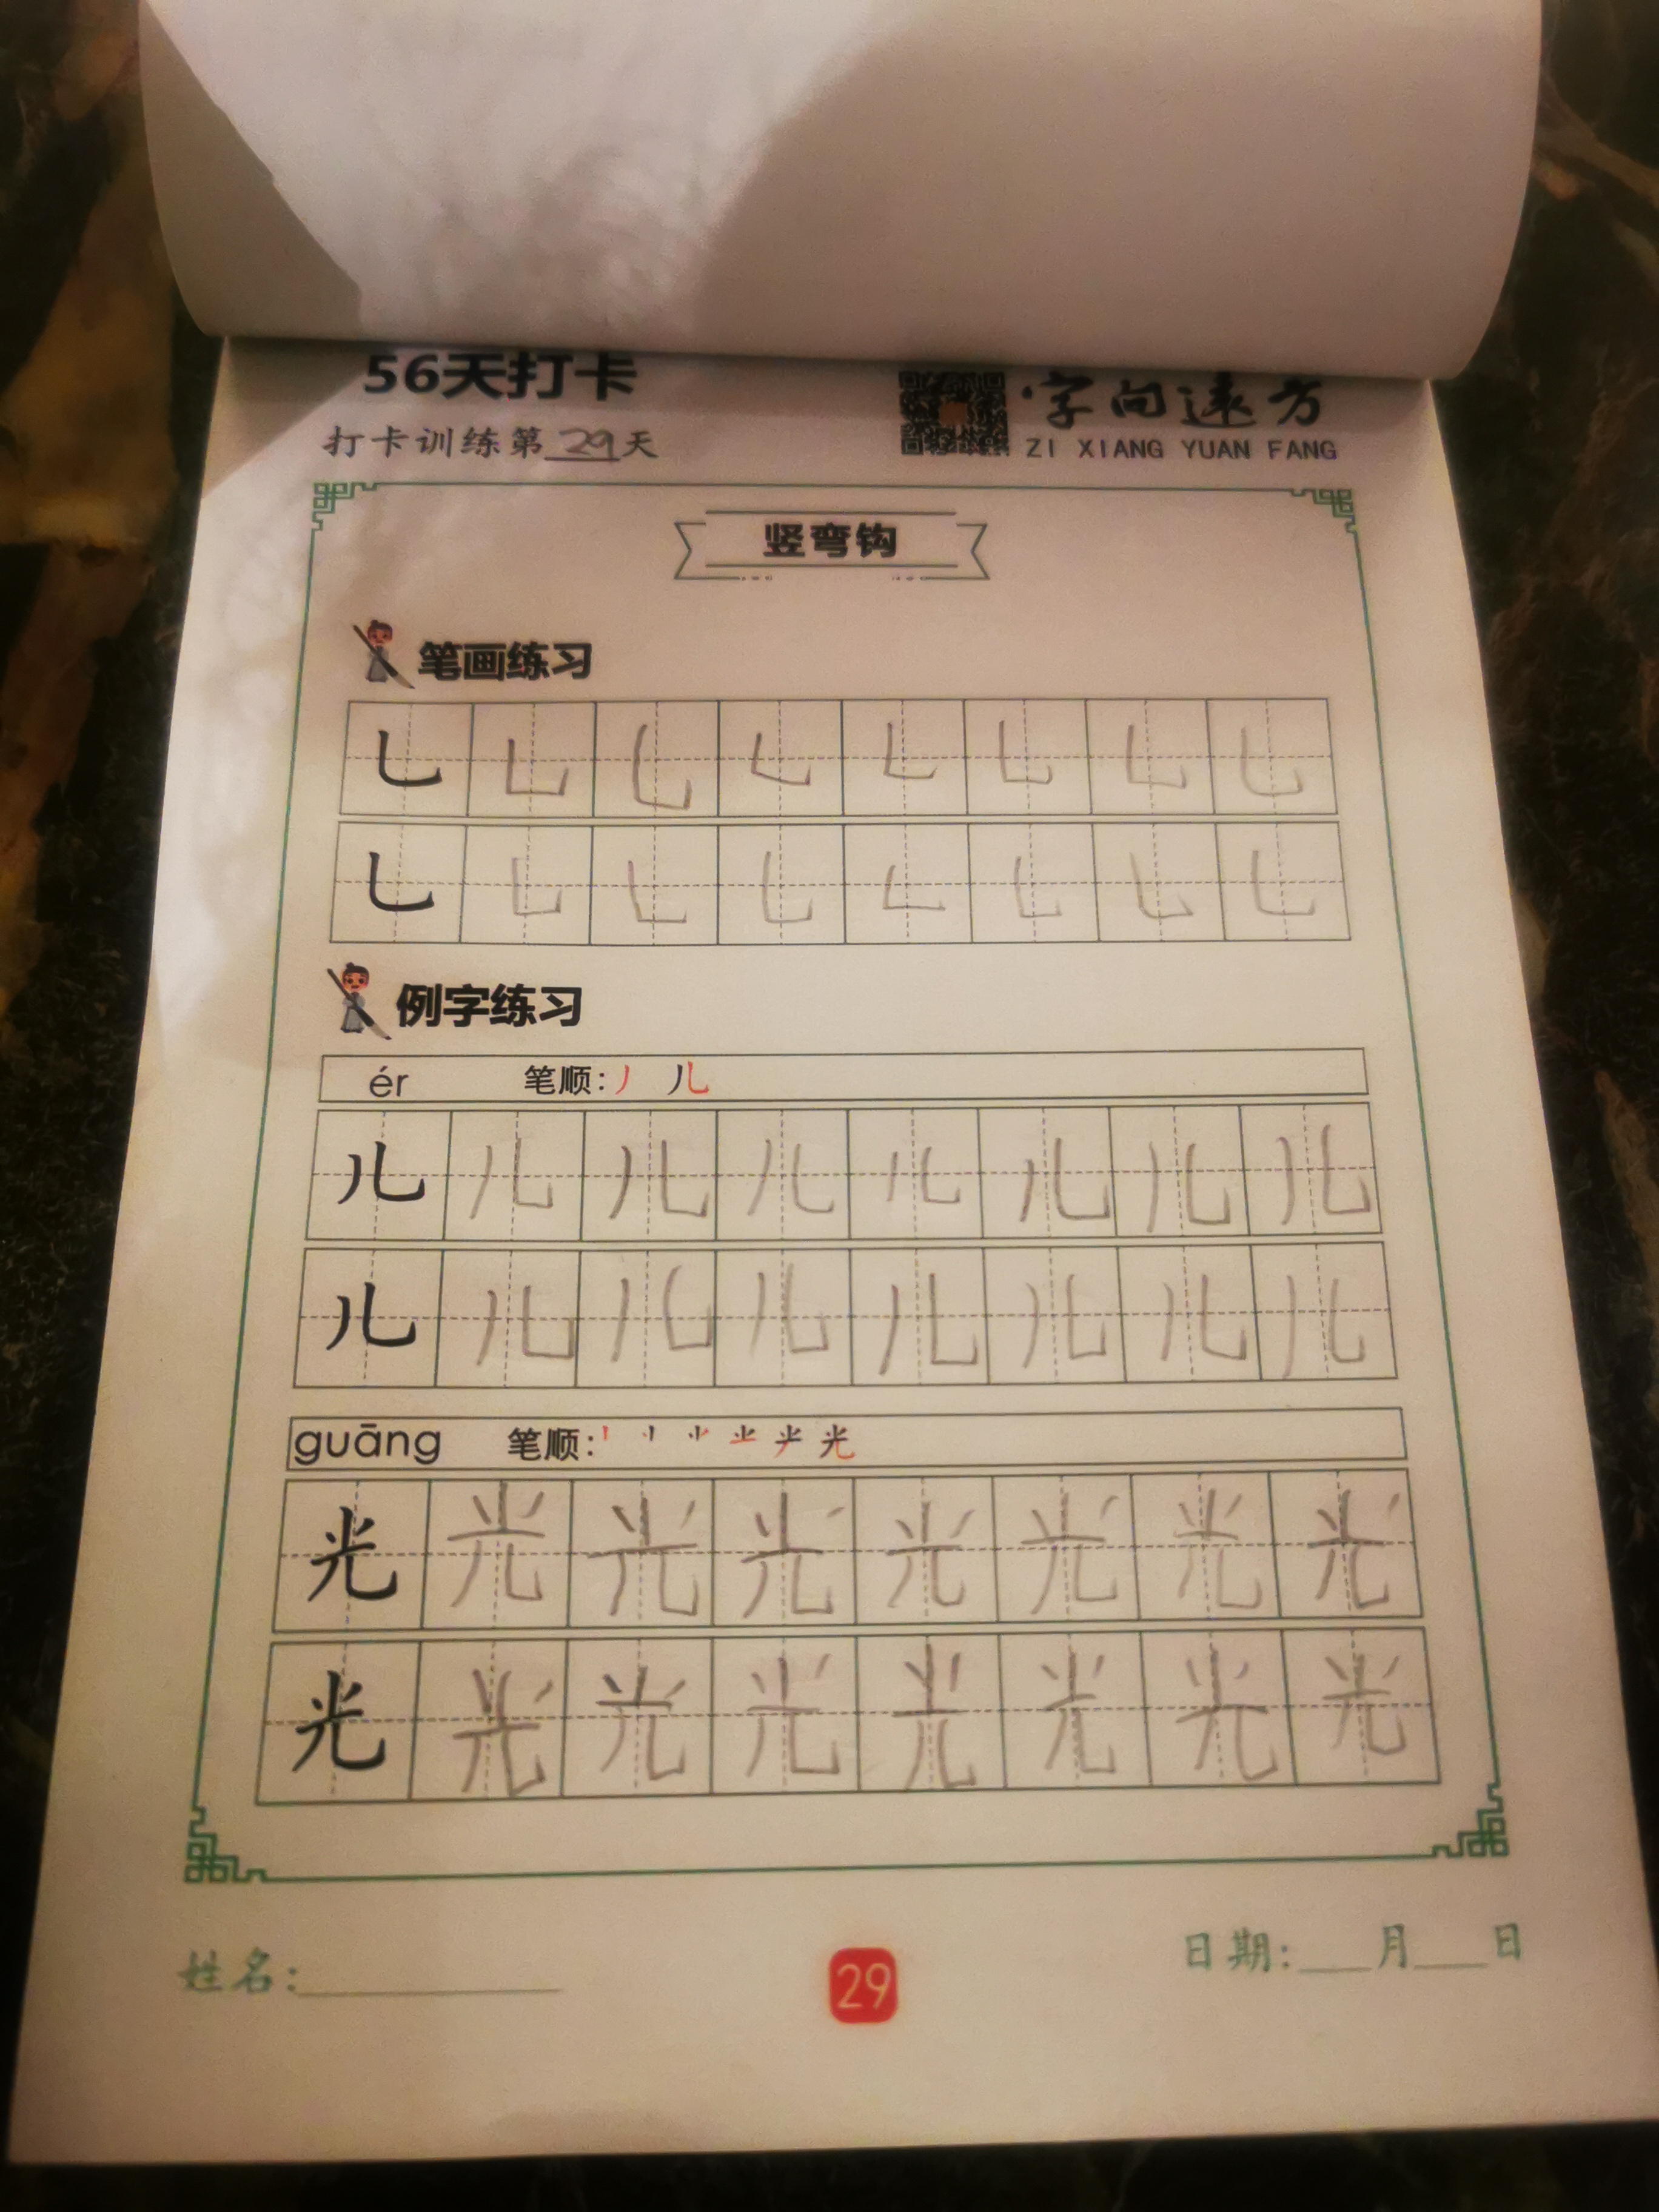 56天打卡
字向远方
打卡训练第29天
ZI XIANG YUAN FANG
竖弯钩
笔画练习
乚 乚 乚 乚 乚 乚 乚 乚
乚 乚 乚 乚 乚 乚 乚 乚
例字练习
ér 笔顺:丿 儿
儿 儿 儿 儿 儿 儿 儿 儿
儿 儿 儿 儿 儿 儿 儿 儿
guāng 笔顺: 光
光 光 光 光 光 光 光 光
光 光 光 光 光 光 光 光
姓名:
29
日期: 月 日